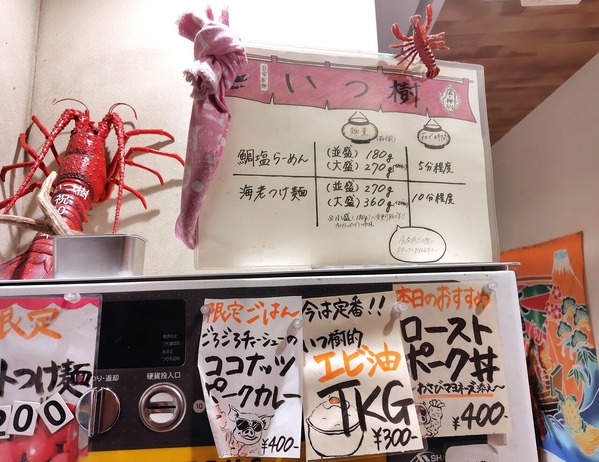 いつ樹
麺量
鯛塩らーめん
(並盛) 180g
(大盛) 270g
5分程度
海老つけ麺
(並盛) 270g
(大盛) 360g
10分程度
限定
つけ麺
200
り・返却
硬貨投入口
限定ごはん
ごろごろチャーシューの
ココナッツ
ポークカレー
¥400-
今は定番!!
いつ樹的
エビ油
TKG
¥300-
本日のおすすめ
ロースト
ポーク丼
わさびマヨネーズ添え~
¥400-